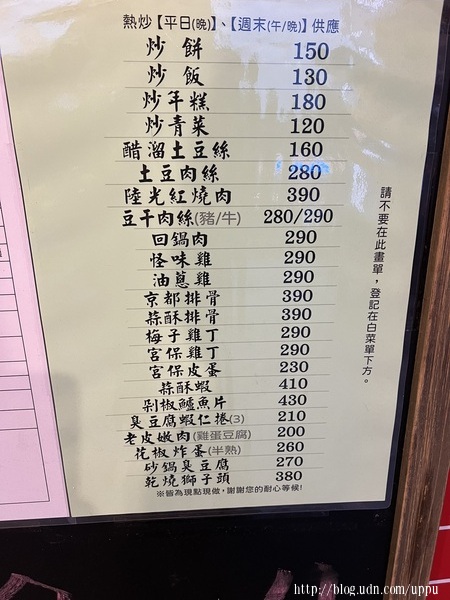 熱炒【平日(晚)】、【週末(午/晚)】供應
炒餅 150
炒飯 130
炒年糕 180
炒青菜 120
醋溜土豆絲 160
土豆肉絲 280
陸光紅燒肉 390
豆干肉絲(豬/牛) 280/290
回鍋肉 290
怪味雞 290
油蔥雞 290
京都排骨 390
蒜酥排骨 390
梅子雞丁 290
宮保雞丁 290
宮保皮蛋 230
蒜酥蝦 410
剁椒鱸魚片 430
臭豆腐蝦仁捲(3) 210
老皮嫩肉(雞蛋豆腐) 200
花椒炸蛋(半熟) 260
砂鍋臭豆腐 270
乾燒獅子頭 380
※皆為現點現做，謝謝您的耐心等候!
請不要在此畫單，登記在白菜單下方。
http://blog.udn.com/uppu